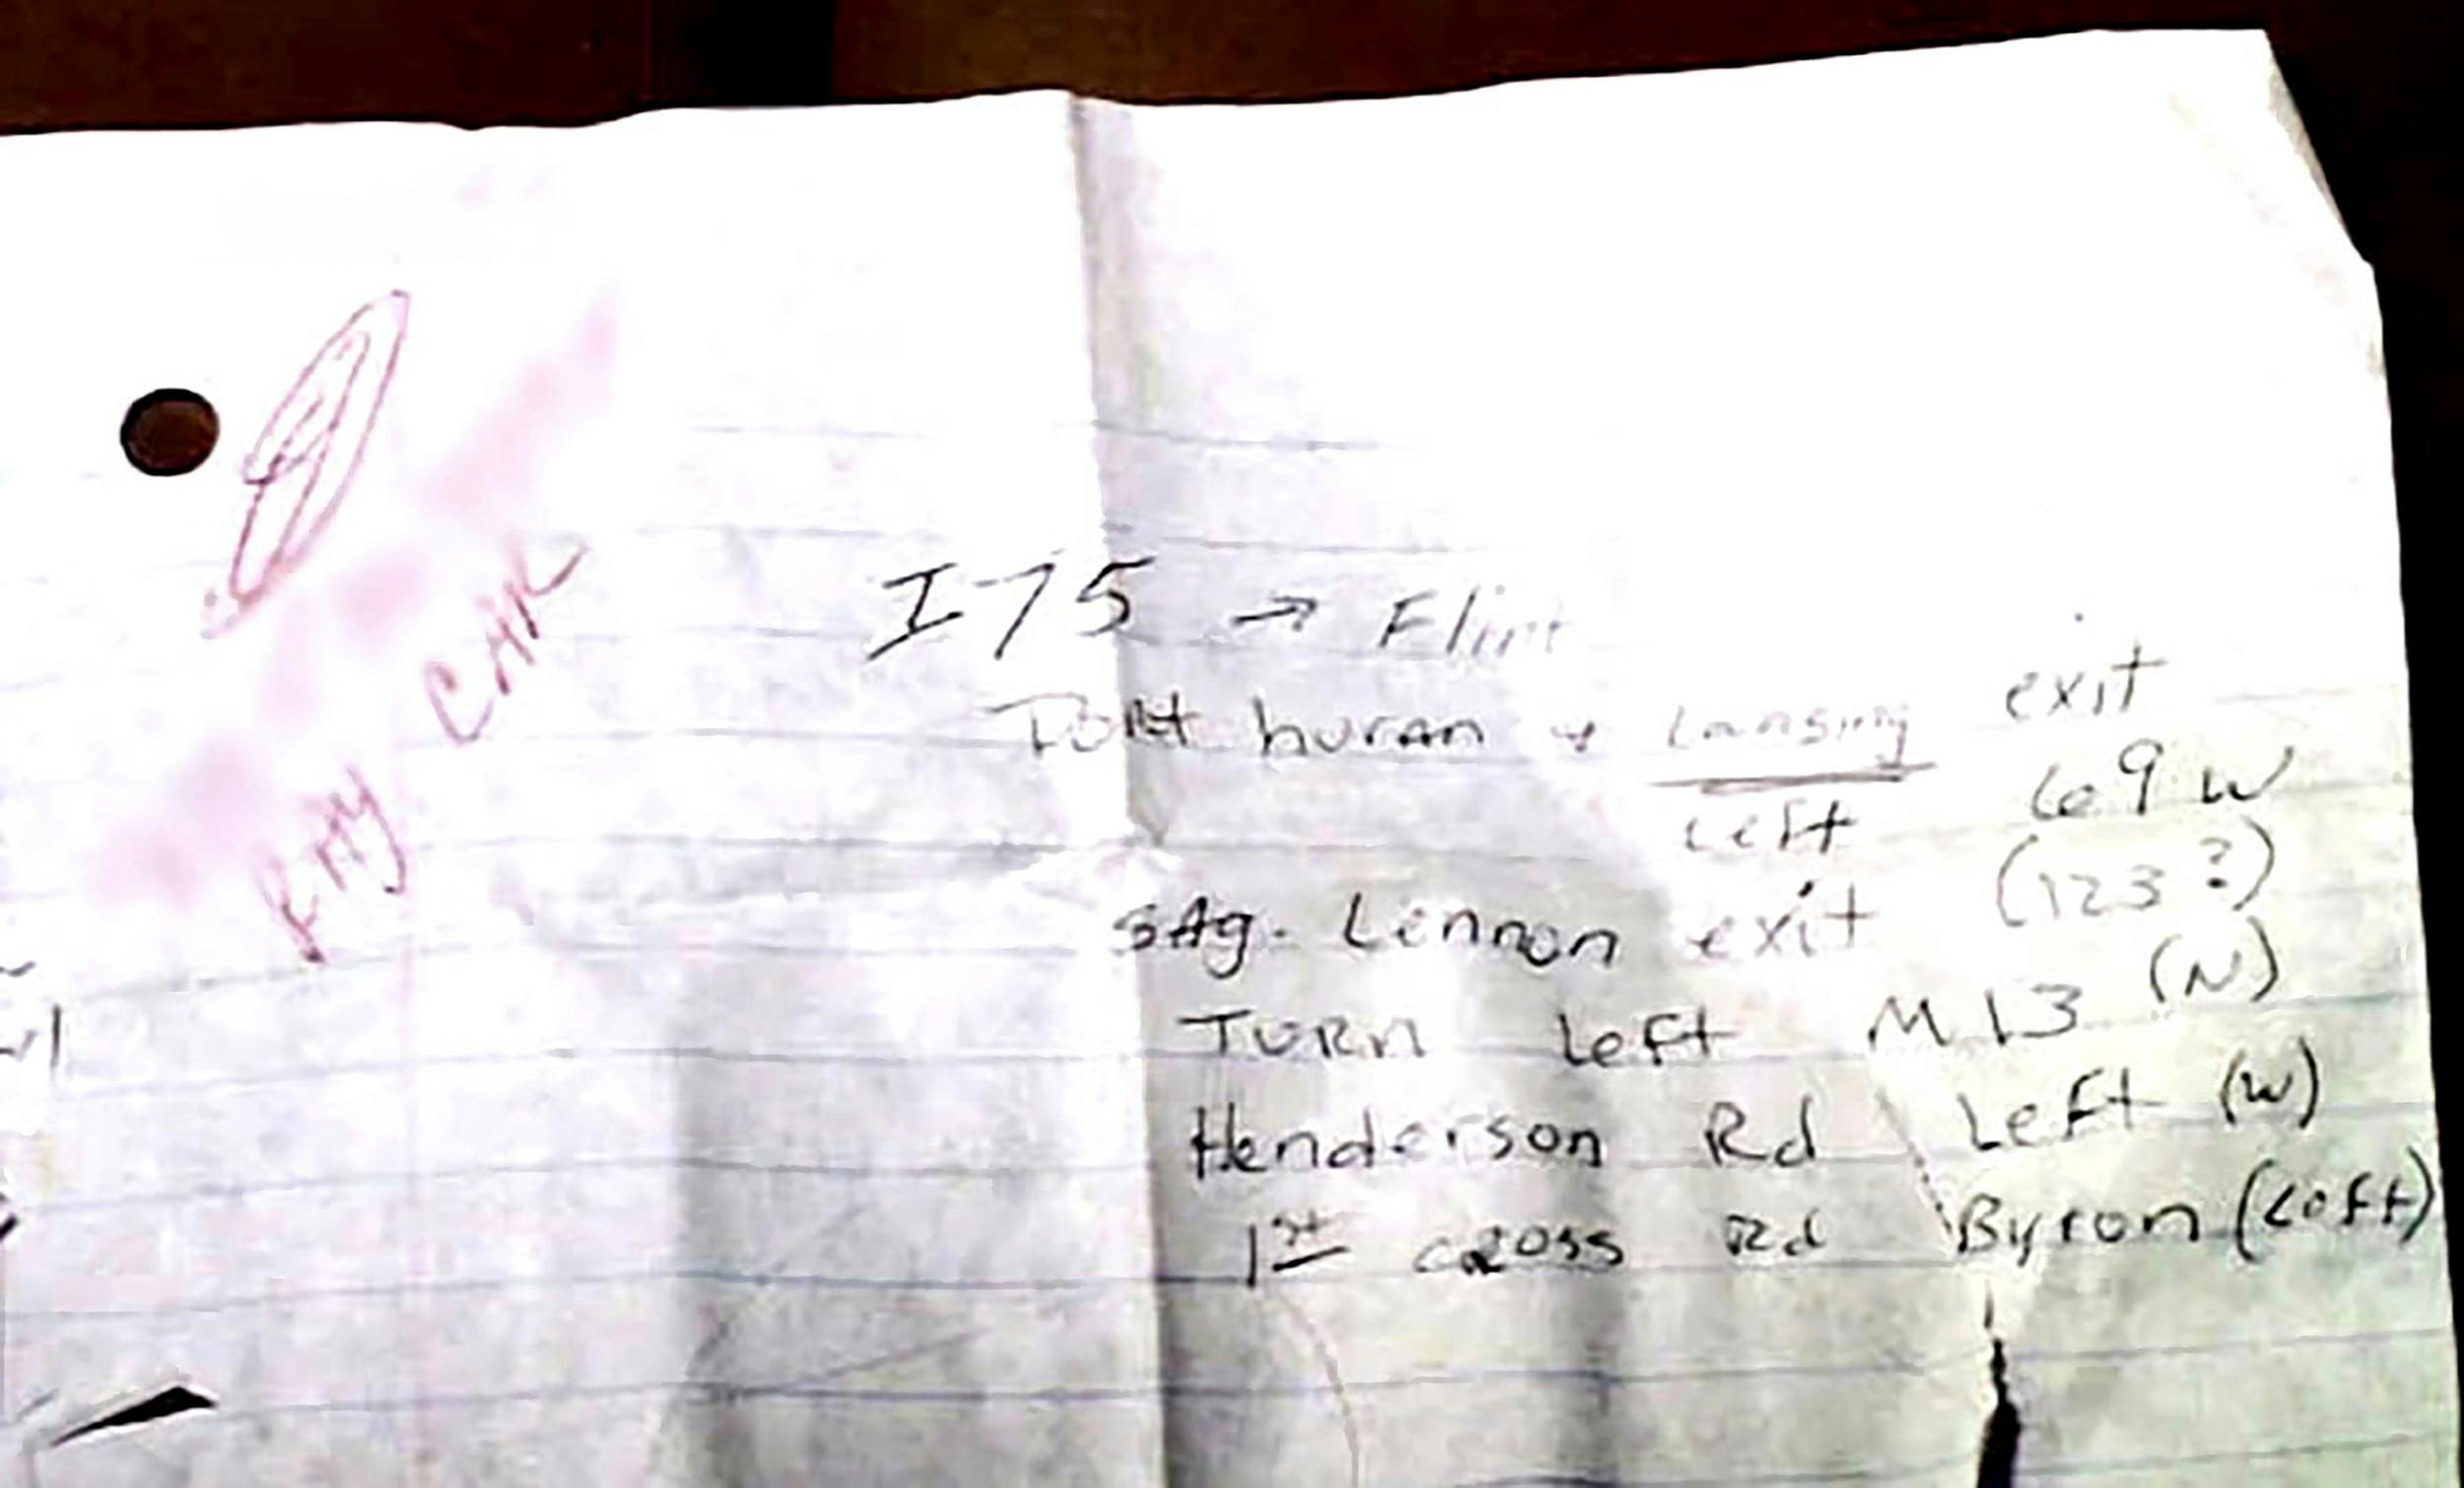 I75 → Flint
Port huron + Lansing exit
Left 69 W
SAg. Lennon exit (123?)
TURN left M 13 (N)
Henderson Rd Left (W)
1st CROSS Rd Byron (Left)